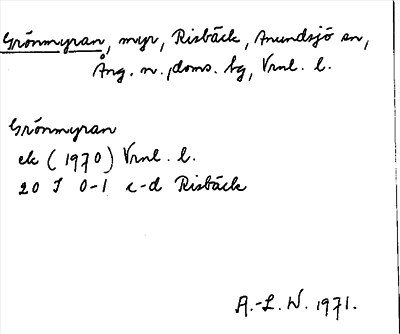 Grönmyran, myr, Risbäck, Anundsjö sn,
Ång. n., doms. bg, Vrnl. l.
Grönmyran
ek (1970) Vrnl. l.
20 I 0-1 c-d Risbäck
A.-L. W. 1971.